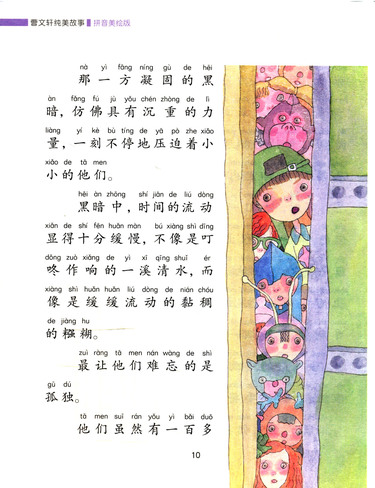 曹文轩纯美故事 拼音美绘版
nà yì fāng níng gù de hēi
那一方凝固的黑
àn fǎng fú jù yǒu chén zhòng de lì
暗，仿佛具有沉重的力
liàng yí kè bù tíng de yā pò zhe xiǎo
量，一刻不停地压迫着小
xiǎo de tā men
小的他们。
hēi àn zhōng shí jiān de liú dòng
黑暗中，时间的流动
xiǎn de shí fēn huǎn màn bú xiàng shì dīng
显得十分缓慢，不像是叮
dōng zuò xiǎng de yì xī qīng shuǐ ér
咚作响的一溪清水，而
xiàng shì huǎn huǎn liú dòng de nián cháu
像是缓缓流动的黏稠
de jiàng hu
的糨糊。
zuì ràng tā men nán wàng de shì
最让他们难忘的是
gū dú
孤独。
tā men suī rán yǒu yì bǎi duō
他们虽然有一百多
10